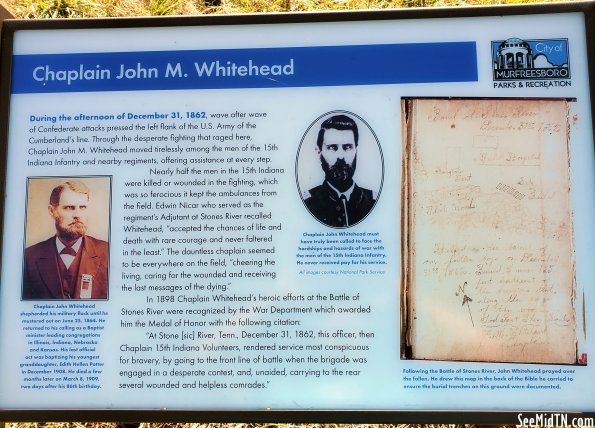 Chaplain John M. Whitehead
City of
MURFREESBORO
PARKS & RECREATION
During the afternoon of December 31, 1862, wave after wave
of Confederate attacks pressed the left flank of the U.S. Army of the
Cumberland's line. Through the desperate fighting that raged here,
Chaplain John M. Whitehead moved tirelessly among the men of the 15th
Indiana Infantry and nearby regiments, offering assistance at every step.
Nearly half the men in the 15th Indiana
were killed or wounded in the fighting, which
was so ferocious it kept the ambulances from
the field. Edwin Nicar who served as the
regiment's Adjutant at Stones River recalled
Whitehead, "accepted the chances of life and
death with rare courage and never faltered
in the least." The dauntless chaplain seemed
to be everywhere on the field, "cheering the
living, caring for the wounded and receiving
the last messages of the dying."
In 1898 Chaplain Whitehead's heroic efforts at the Battle of
Stones River were recognized by the War Department which awarded
him the Medal of Honor with the following citation:
"At Stone [sic] River, Tenn., December 31, 1862, this officer, then
Chaplain 15th Indiana Volunteers, rendered service most conspicuous
for bravery, by going to the front line of battle when the brigade was
engaged in a desperate contest, and, unaided, carrying to the rear
several wounded and helpless comrades."
Chaplain John Whitehead
shepherded his military flock until he
mustered out on June 25, 1864. He
returned to his calling as a Baptist
minister leading congregations
in Illinois, Indiana, Nebraska
and Kansas. His last official
act was baptizing his youngest
granddaughter, Edith Hellen Potter
in December 1908. He died a few
months later on March 8, 1909,
two days after his 86th birthday.
Chaplain John Whitehead must
have truly been called to face the
hardships and hazards of war with
the men of the 15th Indiana Infantry.
He never received pay for his service.
All images courtesy National Park Service
Following the Battle of Stones River, John Whitehead prayed over
the fallen. He drew this map in the back of the Bible he carried to
ensure the burial trenches on this ground were documented.
SeeMidTN.com